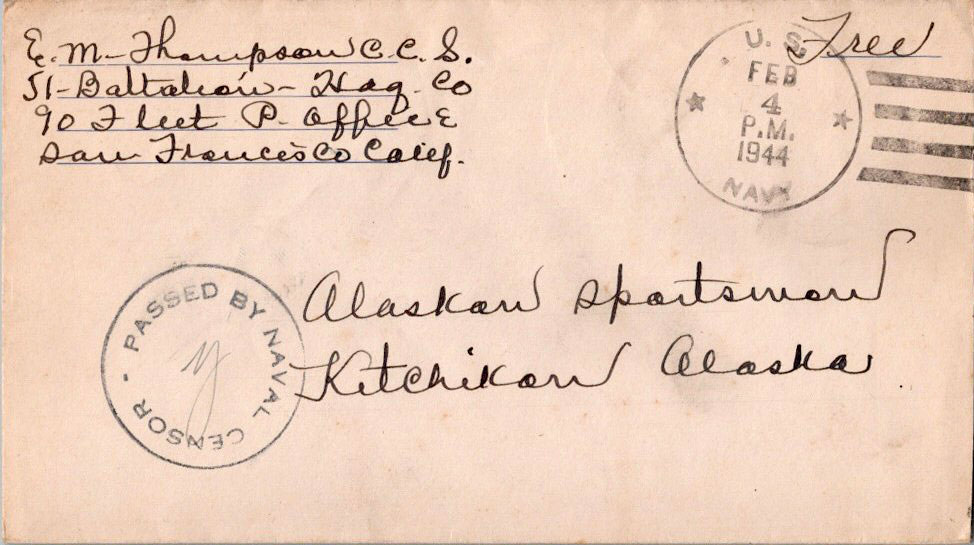 E. M. Thompson C.C.S.
51-Battalion-Hdq. Co
90 Fleet P. Office
San Francisco Calif.
Free
U. S.
FEB
4
P.M.
1944
NAVY
Alaskan Sportsman
Kitchikan Alaska
PASSED BY NAVAL CENSOR